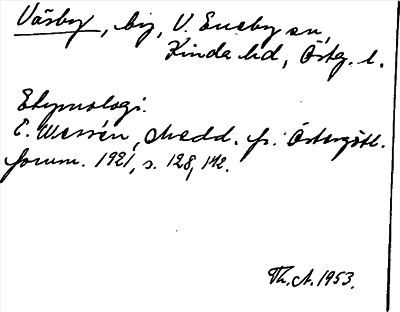 Väsby, by, V. Eneby sn,
Kinda hd, Östg. l.
Etymologi.
E. Wessén, Medd. fr. Östergötl.
fornm. 1921, s. 128, 142.
Th. A. 1953.